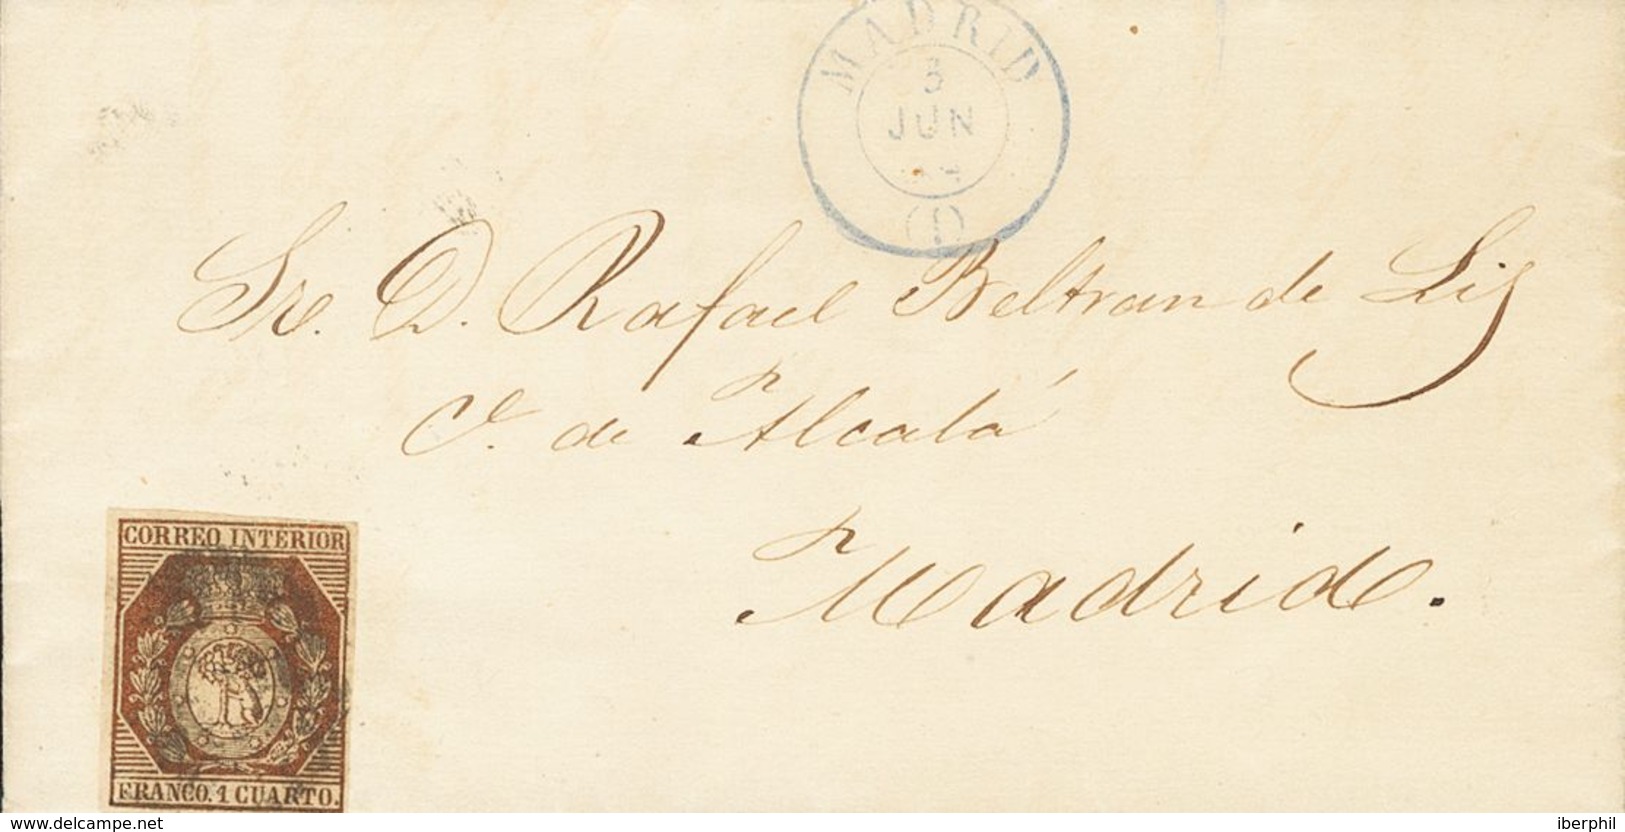 MADRID
3
JUN
(1)
Sr. D. Rafael Beltran de Lis
C. de Alcalá
Madrid.
CORREO INTERIOR
FRANCO. 1 CUARTO.
www.delcampe.net
iberphil